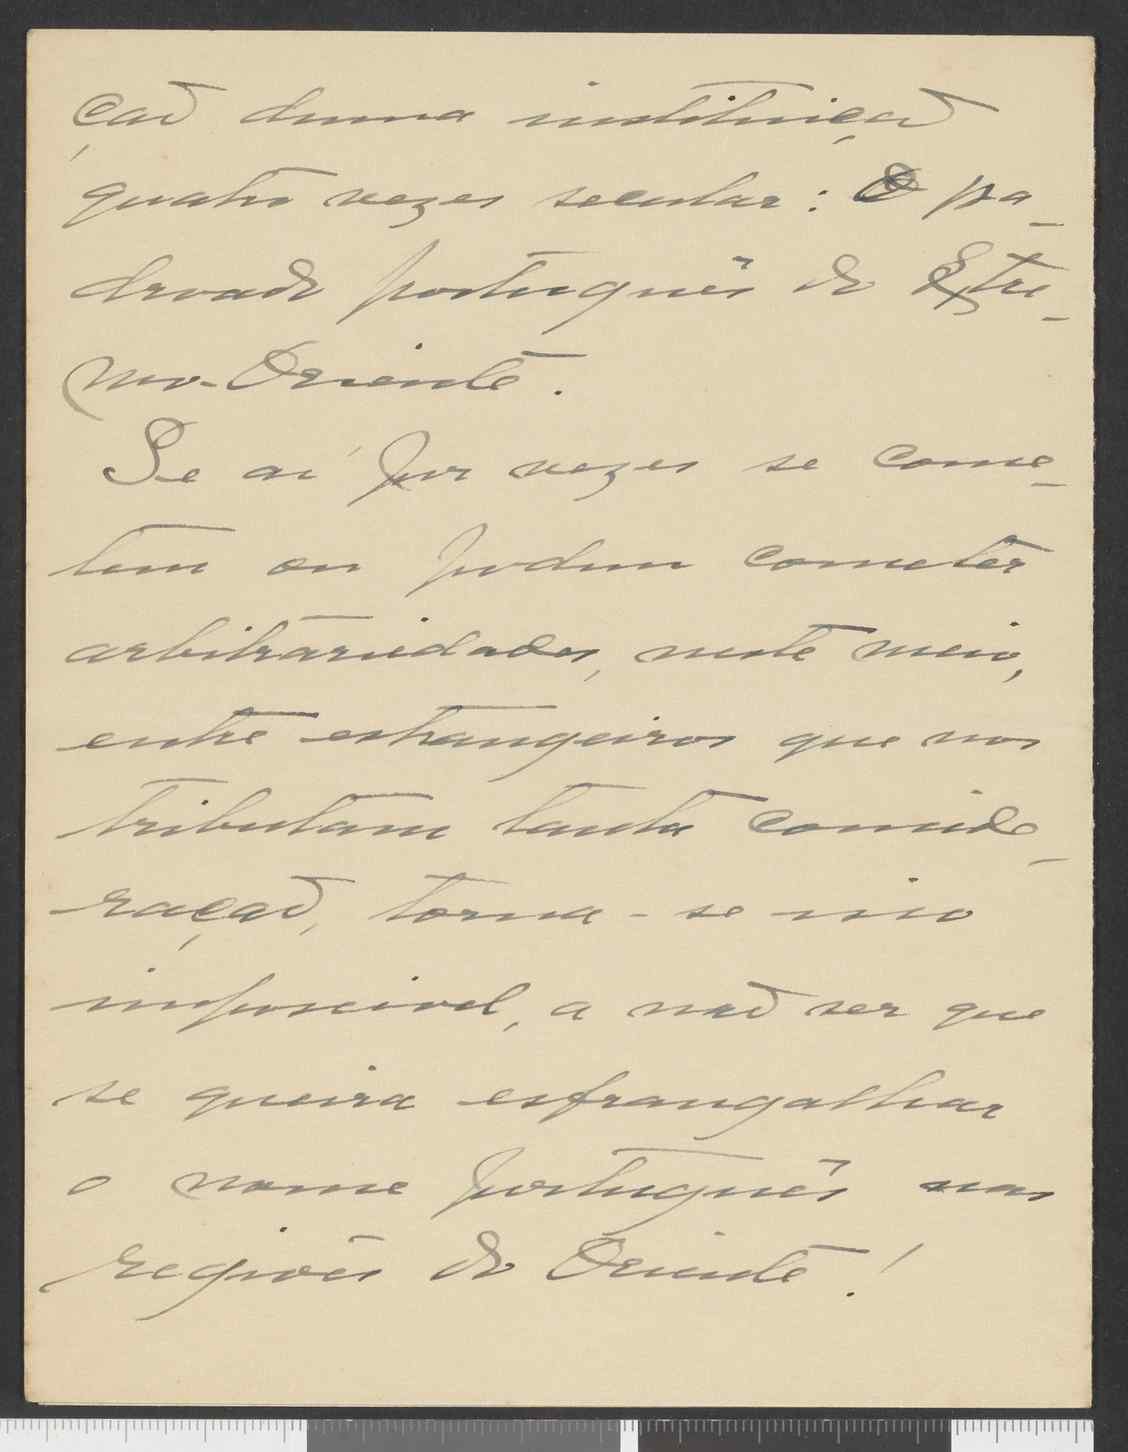 ção duma instituição
quatro vezes secular: O pa-
droado português do Extre-
mo-Oriente.
Se aí por vezes se come-
tem ou podem cometer
arbitrariedades, neste meio,
entre estrangeiros que nos
tributam tanta conside-
ração, torna-se isso
impossivel, a não ser que
se queira esfrangalhar
o nome português nas
regiões do Oriente!